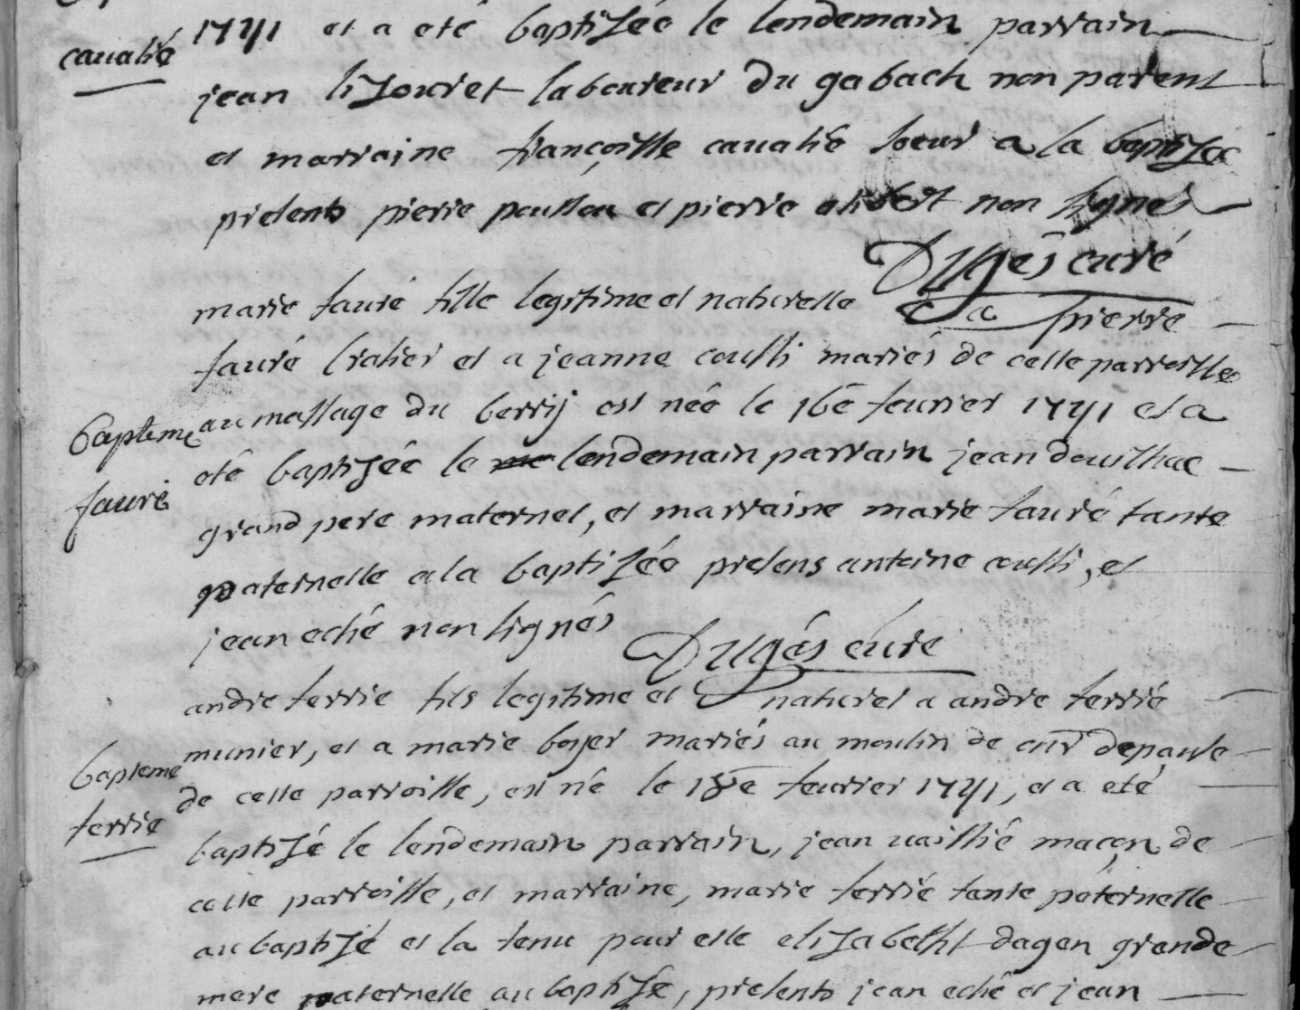 1741 et a eté baptisée le lendemain parrain
cavalié
jean lisouret laboureur du gabach non parent
et marraine françoisse cavalié soeur a la baptisée
presents pierre poussou et pierre alibert non signés
Dugés curé
marie fauré fille legitime et naturelle a pierre
fauré et a jeanne coussi mariés de cette parroisse
bapteme
au massage du berrij est née le 16e feurier 1741 et a
eté baptisée le lendemain parrain jean douilhac
fauré
grand pere maternel, et marraine marie fauré tante
paternelle a la baptisée presens antoine coussi, et
jean eché non signés
Dugés curé
andre terrie fils legitime et naturel a andre terrié
munier, et a marie boyer mariés au moulin de
baptême
de cette parroisse, est né le 18e feurier 1741, et a eté
terrie
baptisé le lendemain parrain, jean vaissié maçon de
cette parroisse, et marraine, marie terrié tante paternelle
au baptisé et la tenu pour elle elisabetht dagen grande
mere paternelle au baptisé, presents jean eché et jean